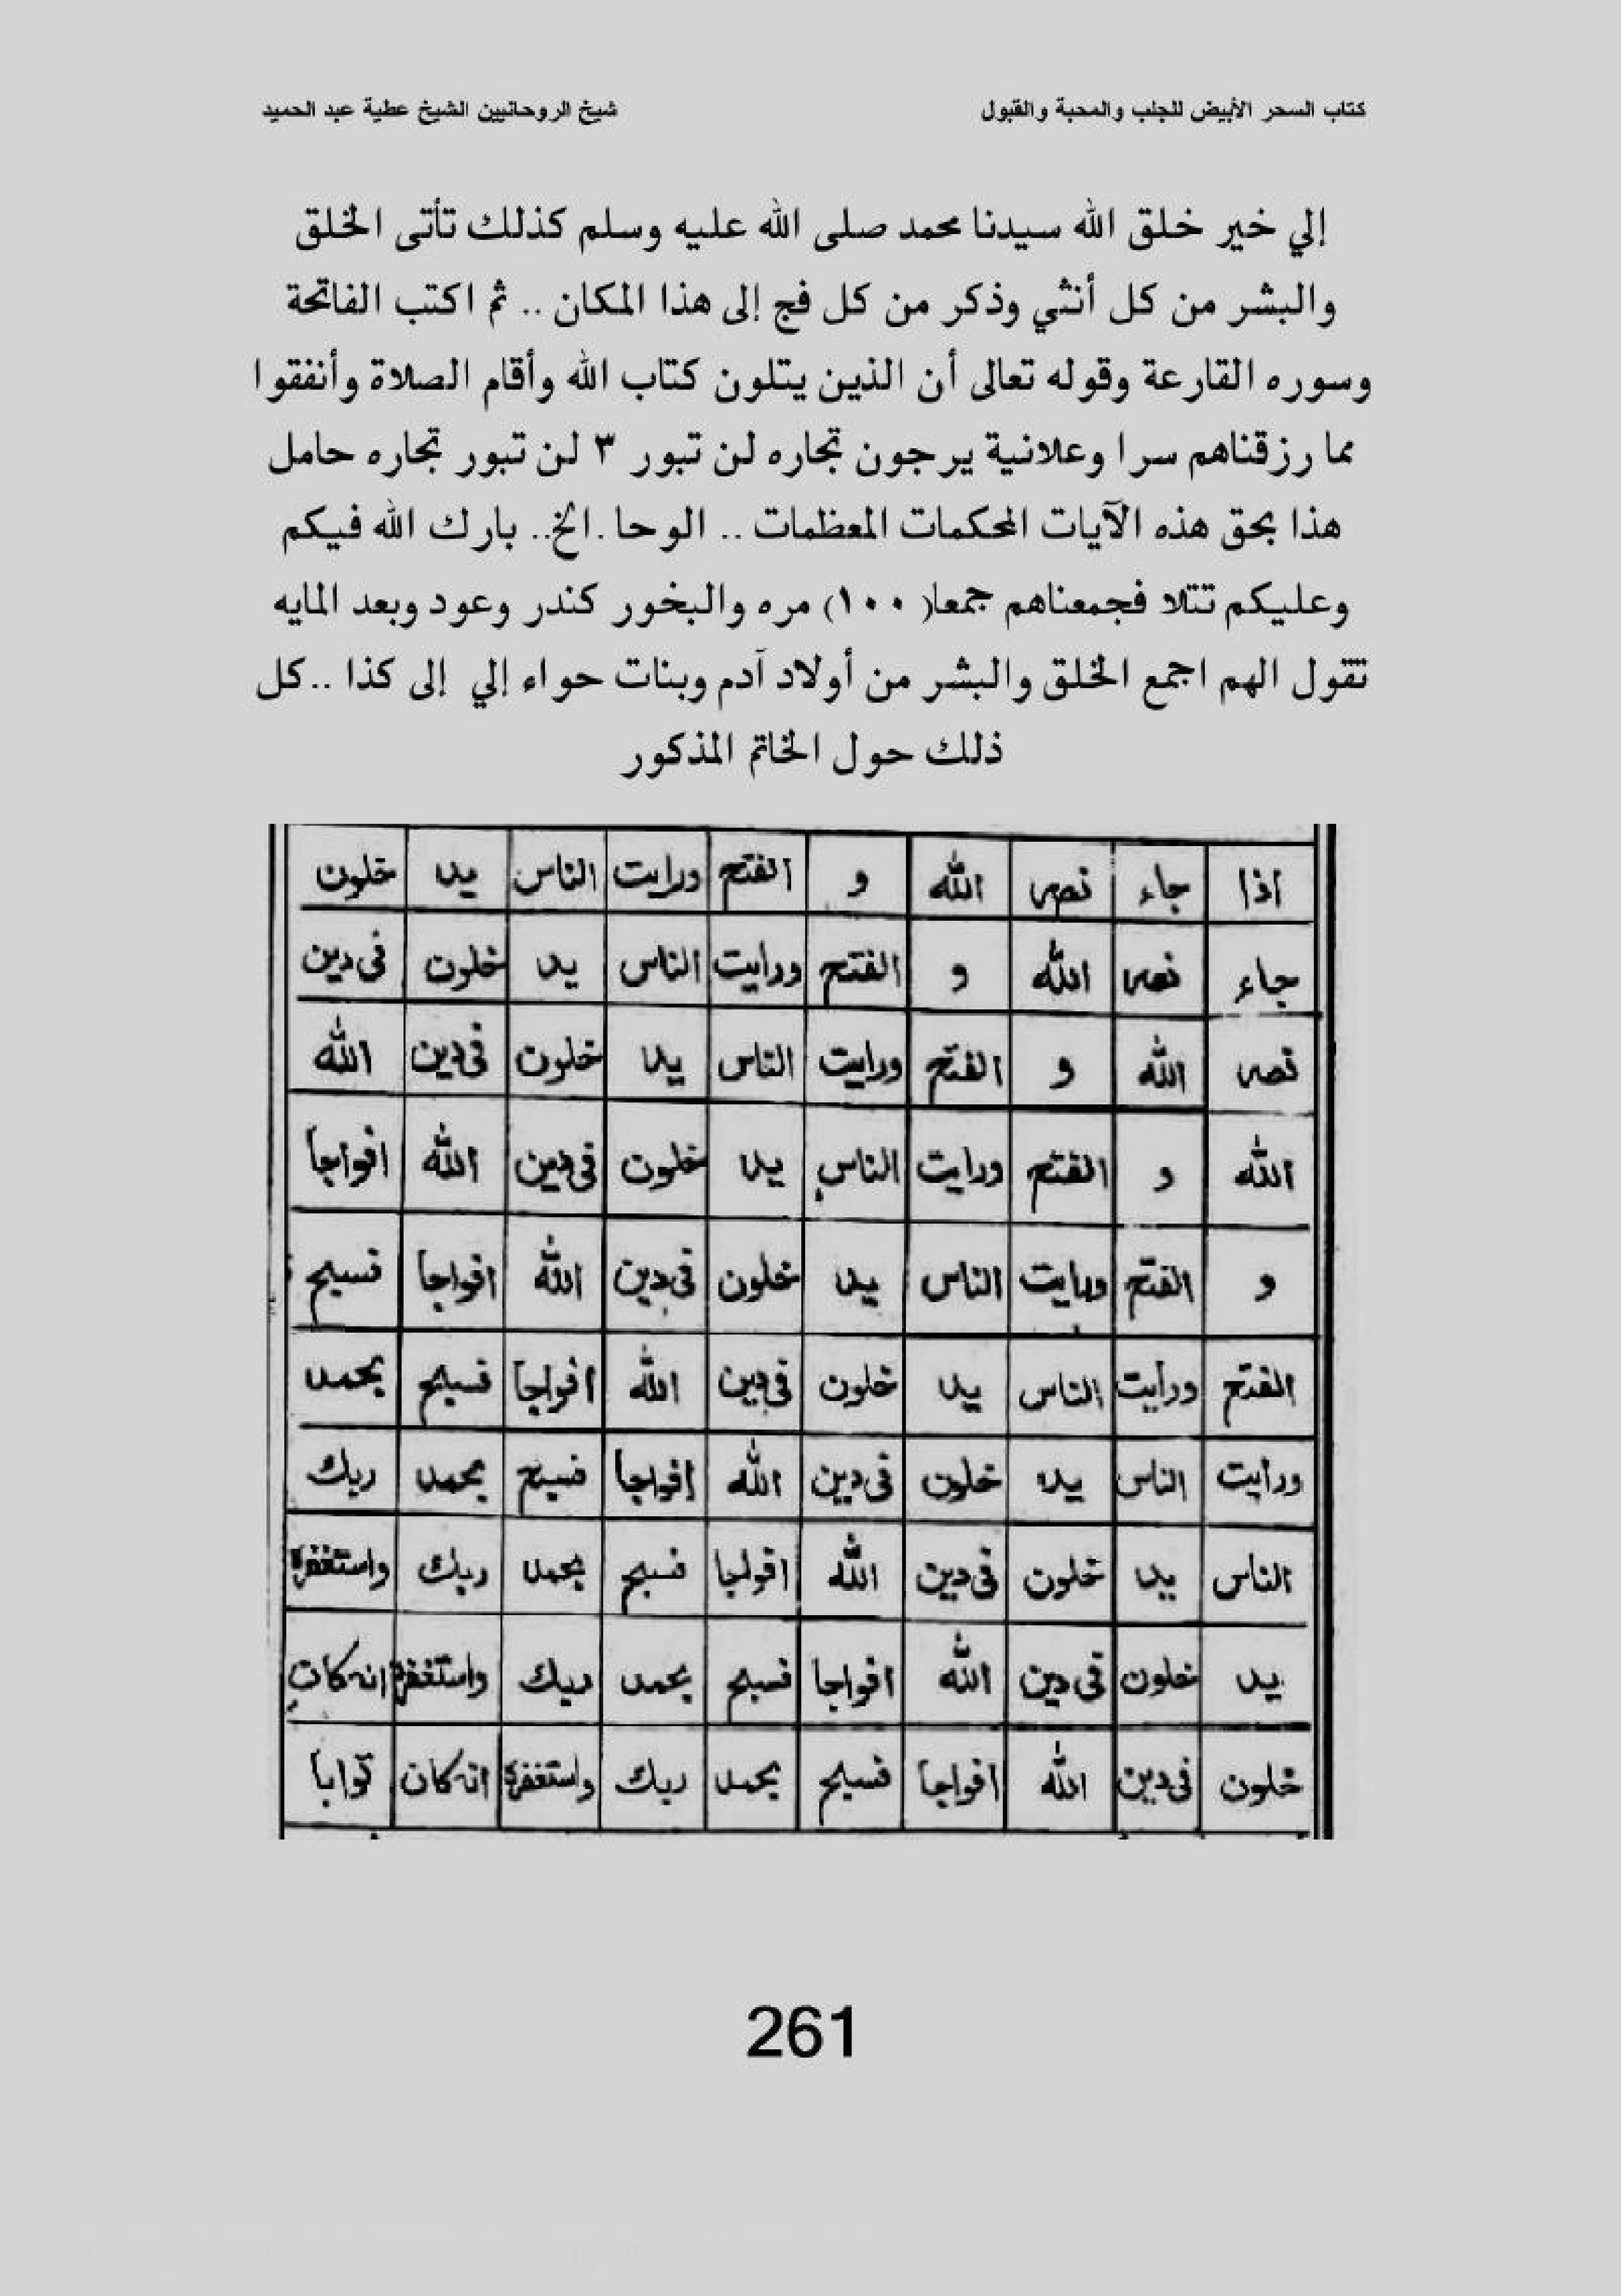 كتاب السحر الأبيض للجلب والمحبة والقبول شيخ الروحانيين الشيخ عطية عبد الحميد
إلي خير خلق الله سيدنا محمد صلى الله عليه وسلم كذلك تأتى الخلق
والبشر من كل أنثي وذكر من كل فج إلى هذا المكان .. ثم اكتب الفاتحة
وسوره القارعة وقوله تعالى أن الذين يتلون كتاب الله وأقام الصلاة وأنفقوا
مما رزقناهم سرا وعلانية يرجون تجاره لن تبور ٣ لن تبور تجاره حامل
هذا بحق هذه الآيات المحكمات المعظمات .. الوحا .الخ.. بارك الله فيكم
وعليكم تتلا فجمعناهم جمعا( ١٠٠) مره والبخور كندر وعود وبعد المايه
تقول الهم اجمع الخلق والبشر من أولاد آدم وبنات حواء إلي إلى كذا ..كل
ذلك حول الخاتم المذكور
اذا جاء نصر الله و الفتح ورايت الناس يد خلون
جاء نصر الله و الفتح ورايت الناس يد خلون فى دين
نصر الله و الفتح ورايت الناس يد خلون فى دين الله
الله و الفتح ورايت الناس يد خلون فى دين الله افواجا
و الفتح ورايت الناس يد خلون فى دين الله افواجا فسبح
الفتح ورايت الناس يد خلون فى دين الله افواجا فسبح بحمد
ورايت الناس يد خلون فى دين الله افواجا فسبح بحمد ربك
الناس يد خلون فى دين الله افواجا فسبح بحمد ربك واستغفره
يد خلون فى دين الله افواجا فسبح بحمد ربك واستغفره انه كان
خلون فى دين الله افواجا فسبح بحمد ربك واستغفره انه كان توابا
261